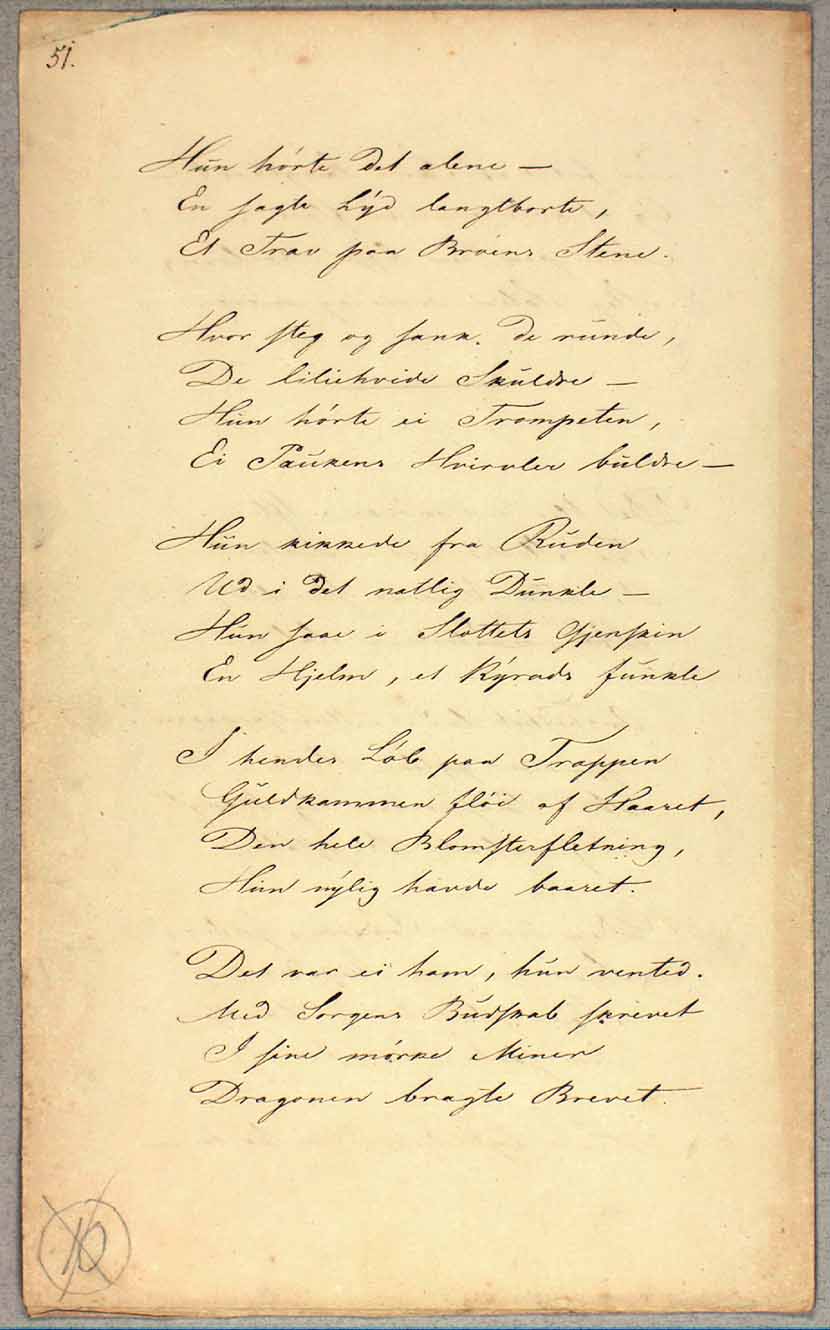 51.
Hun hørte det alene —
En sagte Lyd langtborte,
Et Trav paa Broens Stene.
Hvor steg og sank de runde,
De liliehvide Skuldre —
Hun hørte ei Trompeten,
Ei Paukens Hvirvler buldre —
Hun kikkede fra Ruden
Ud i det natlig Dunkle —
Hun saae i Slottets Gjenskin
En Hjelm, et Kyrads funkle
I hendes Løb paa Trappen
Guldkammen fløi af Haaret,
Den hele Blomsterfletning,
Hun nylig havde baaret.
Det var ei ham, hun vented.
Med Sorgens Budskab skrevet
I sine mørke Miner
Dragonen bragte Brevet.
10